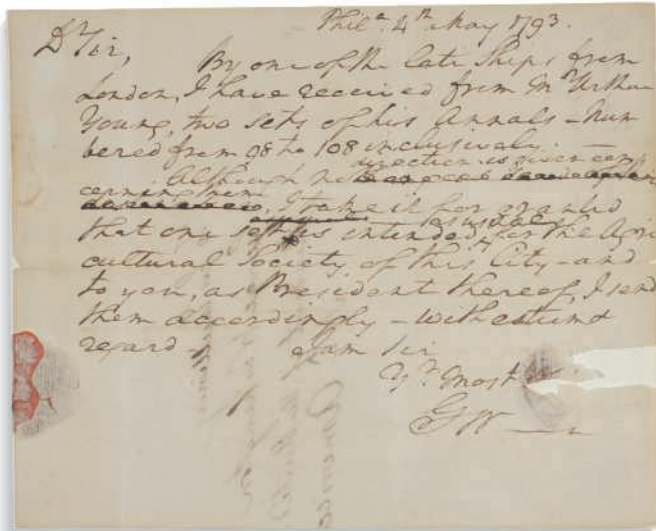 Phila. 4th May 1793.
Dr Sir,
By one of the late Ships from
London, I have received from Mr Arthur
Young, two sets of his Annals – Num
bered from 98 to 108 inclusively. –
direction is given con
Although no
cerning them
I take it for granted
as usual
that one set is intended, for the Agri
cultural Society of this City – and
to you, as President thereof, I send
them accordingly – with esteem &
regard – I am Sir
Yr. Most
GW